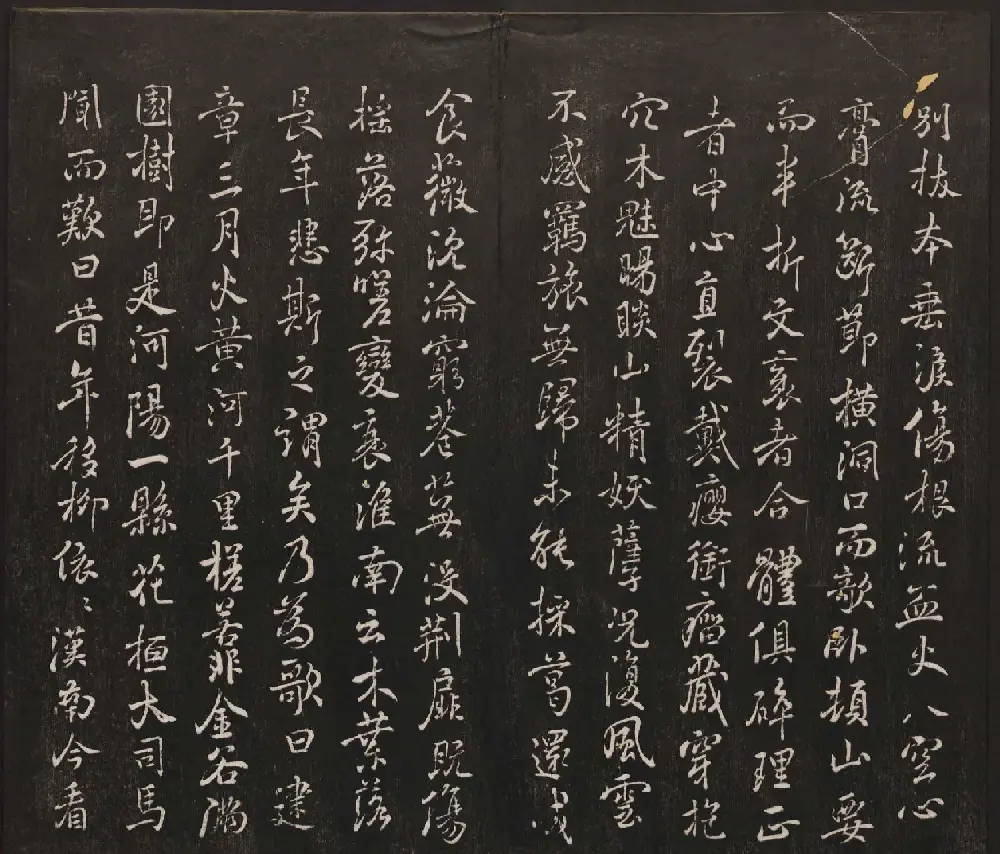 別拔本垂淚傷根流血火入空心
膏流斷節橫洞口而敧臥頓山要
而半折文衺者合體俱碎理正
者中心直裂戴癭銜瘤藏穿抱
穴木魅睗睒山精妖孽况復風雲
不感羈旅無歸未能採葛還成
食薇沉淪窮巷蕪沒荊扉既傷
搖落弥嗟變衰淮南云木葉落
長年悲斯之謂矣乃為歌曰建
章三月火黃河千里槎若非金谷滿
園樹即是河陽一縣花桓大司馬
聞而歎曰昔年移柳依〻漢南今看